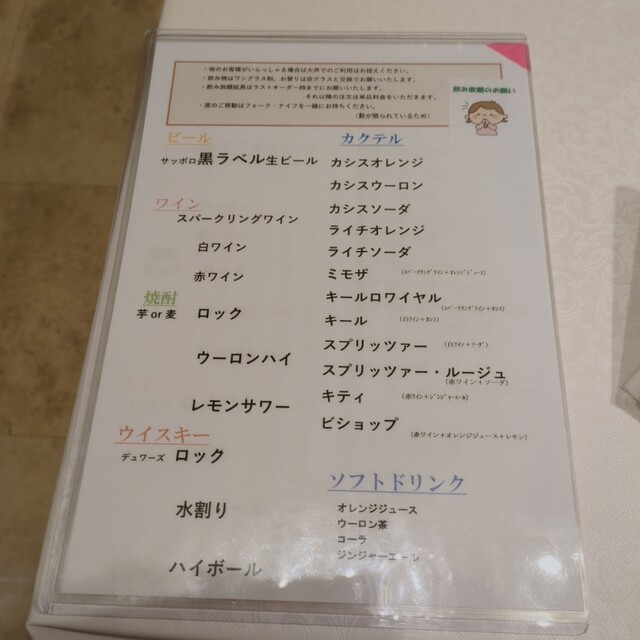 ・他のお客様がいらっしゃる場合は大声でのご利用はお控えください。
・飲み物はワングラス制、お替りは空グラスと交換でお願いいたします。
・飲み放題延長はラストオーダー時までにお願いいたします。
それ以降の注文は単品料金をいただきます。
・席のご移動はフォーク・ナイフを一緒にお持ちください。
(数が限られているため)
飲み放題のお願い
ビール
サッポロ黒ラベル生ビール
ワイン
スパークリングワイン
白ワイン
赤ワイン
焼酎
芋 or 麦 ロック
ウーロンハイ
レモンサワー
ウイスキー
デュワーズ ロック
水割り
ハイボール
カクテル
カシスオレンジ
カシスウーロン
カシスソーダ
ライチオレンジ
ライチソーダ
ミモザ (スパークリングワイン+オレンジジュース)
キールロワイヤル (スパークリングワイン+カシス)
キール (白ワイン+カシス)
スプリッツァー (白ワイン+ソーダ)
スプリッツァー・ルージュ (赤ワイン+ソーダ)
キティ (赤ワイン+ジンジャーエール)
ビショップ (赤ワイン+オレンジジュース+レモン)
ソフトドリンク
オレンジジュース
ウーロン茶
コーラ
ジンジャーエール